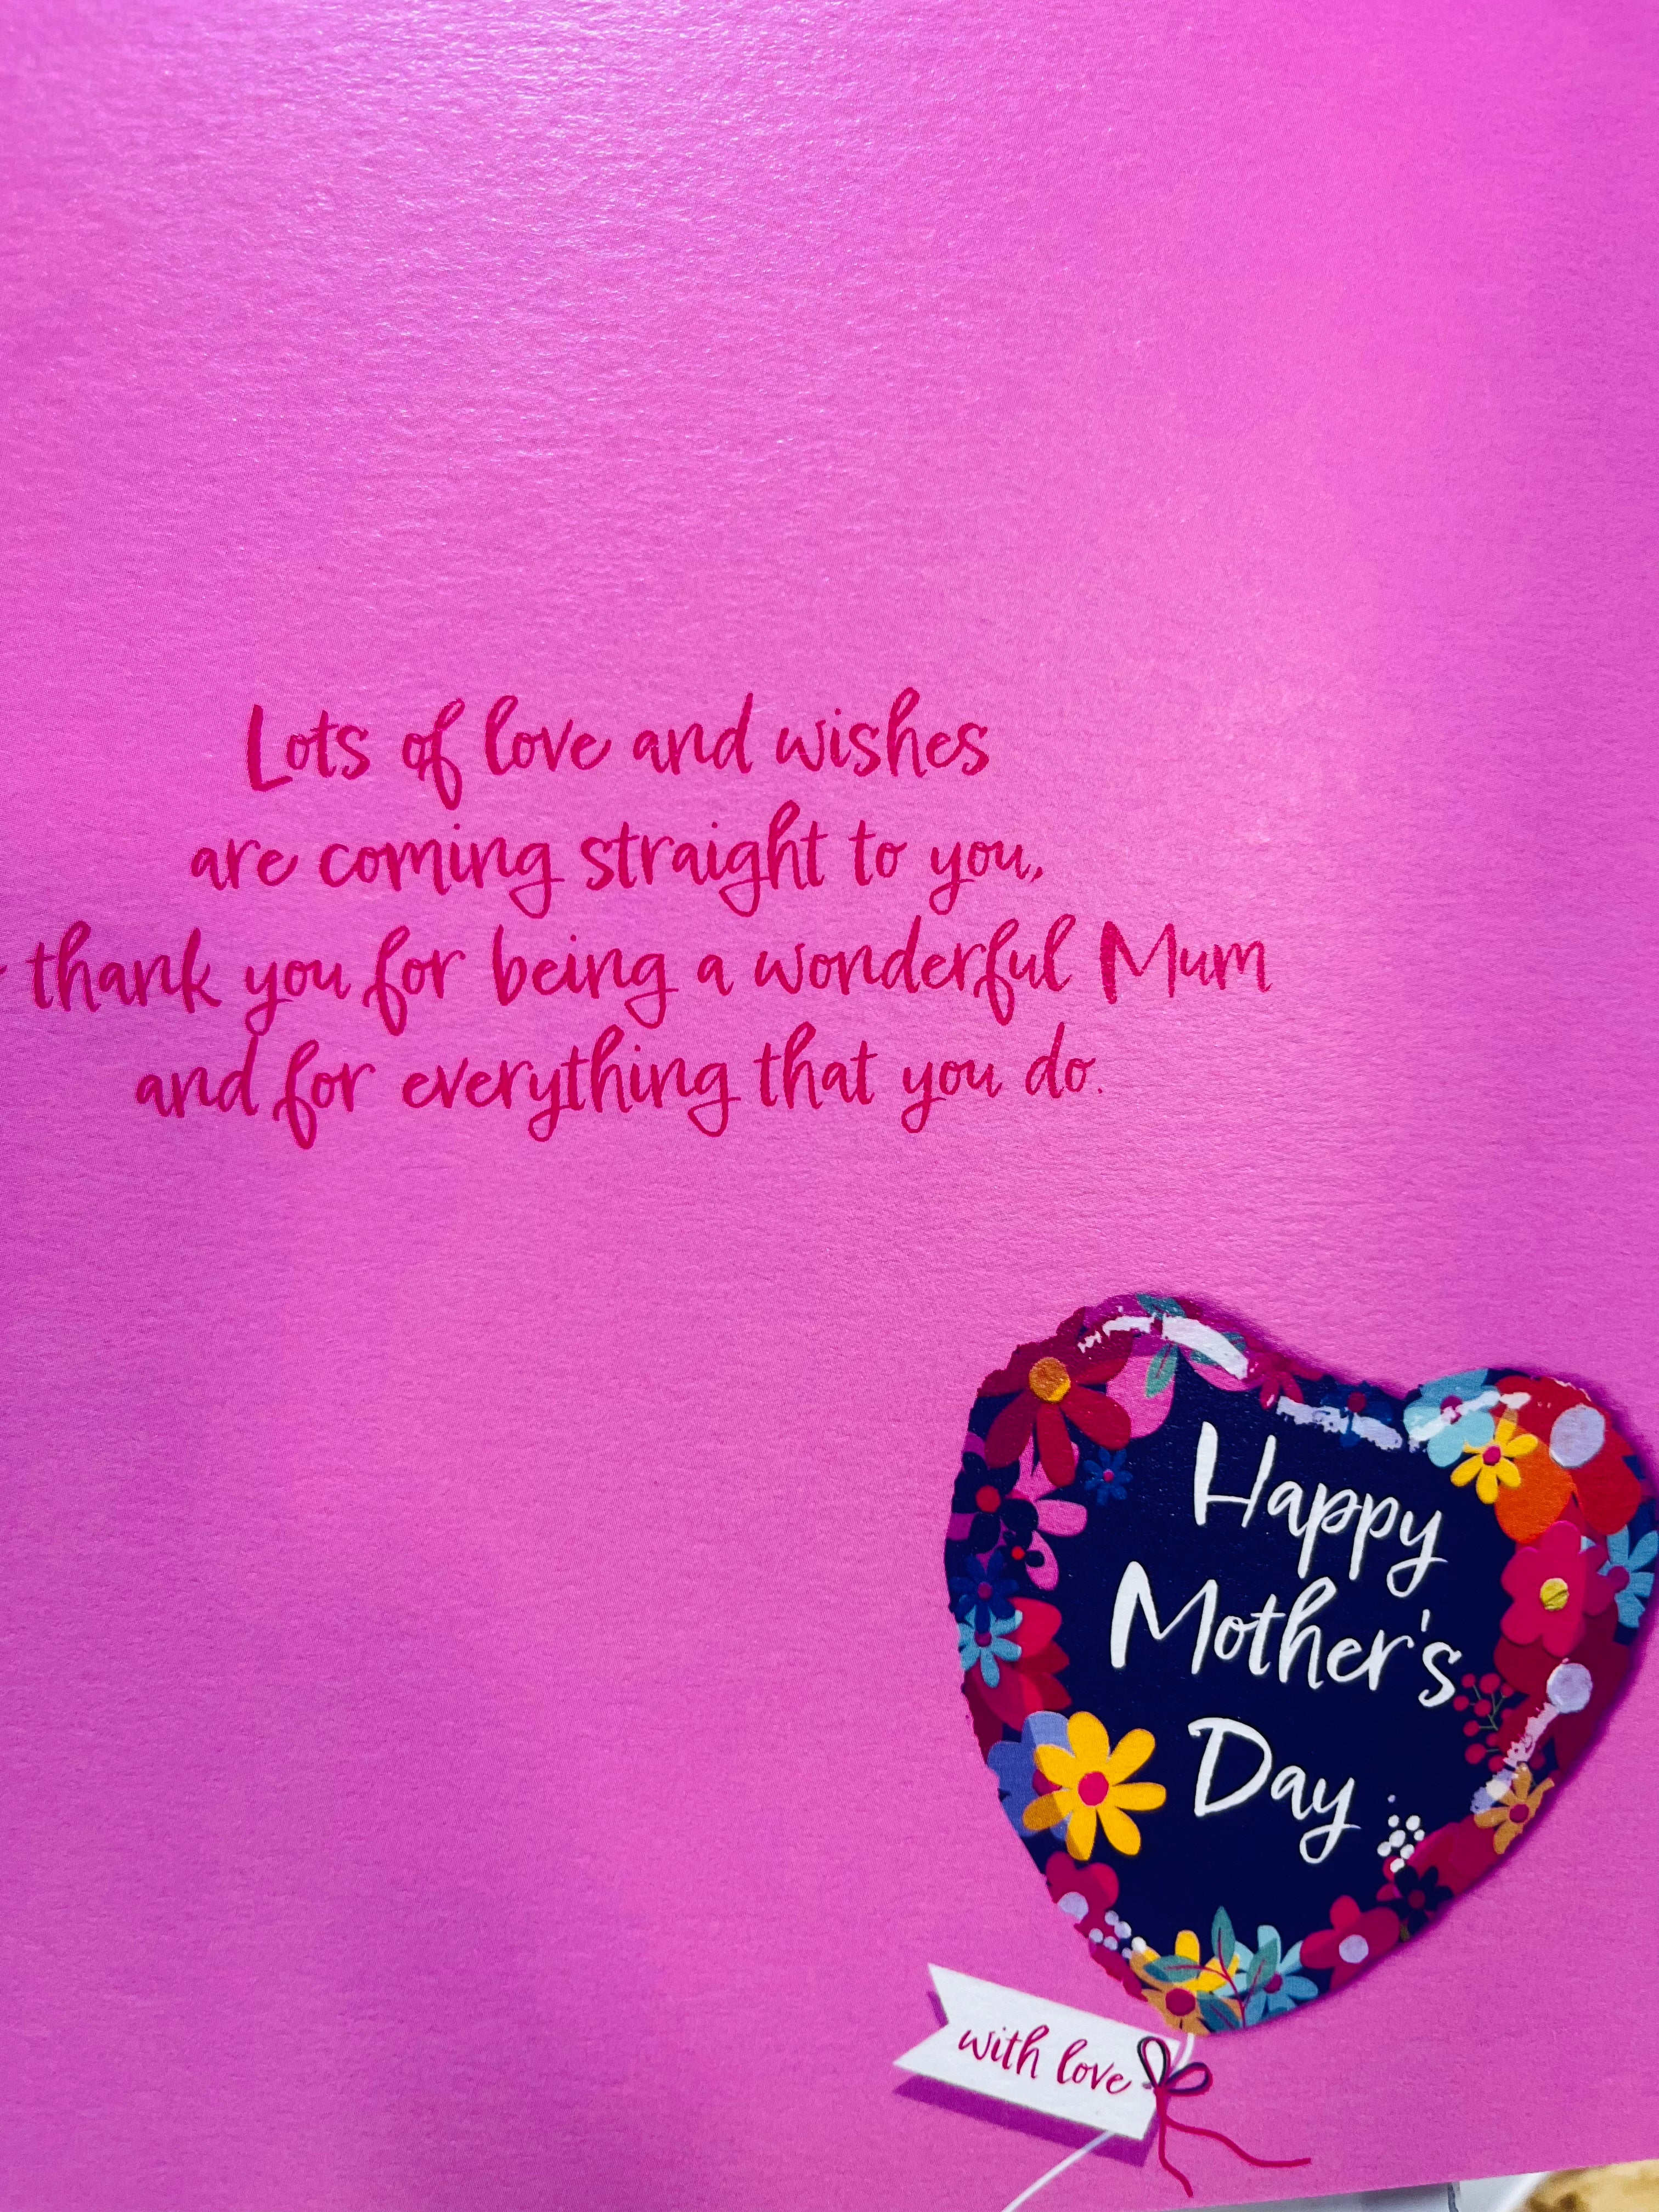 Lots of love and wishes
are coming straight to you,
- thank you for being a wonderful Mum
and for everything that you do.
Happy
Mother's
Day
with love